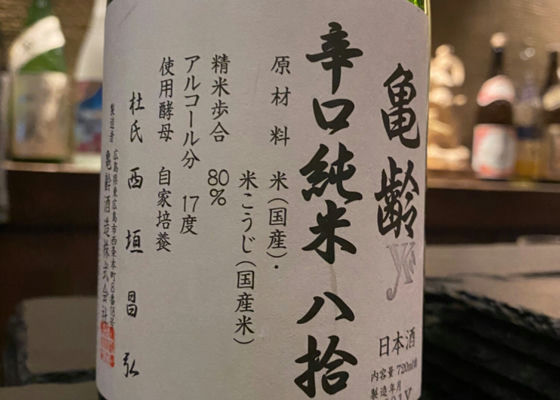 亀齢
日本酒
内容量720ml詰
製造年月
辛口純米八拾
原材料 米(国産)・
米こうじ(国産米)
精米歩合 80%
アルコール分 17度
使用酵母 自家培養
杜氏 西垣昌弘
製造者 亀齢酒造株式会社
広島県東広島市西条本町8番18号